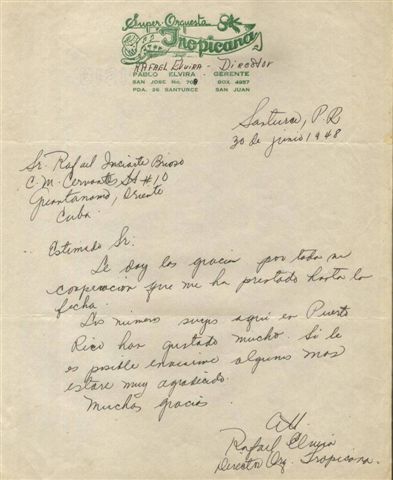 Super-Orquesta
Tropicana
RAFAEL ELVIRA - Director
PABLO ELVIRA - GERENTE
SAN JOSE No. 708 BOX. 4957
PDA. 26 SANTURCE SAN JUAN
Santurce, P.R
30 de junio 1948
Sr. Rafael Inciarte Brioso
C.M. Cervantes St #10
Guantanamo, Oriente
Cuba.
Estimado Sr:
Le doy las gracias por toda su
cooperacion que me ha prestado hasta la
fecha.
Los numeros suyos aqui en Puerto
Rico han gustado mucho. Si le
es posible enviarme algunos mas
estare muy agradecido.
Muchas gracias
Rafael Elvira
Director Orq. Tropicana.